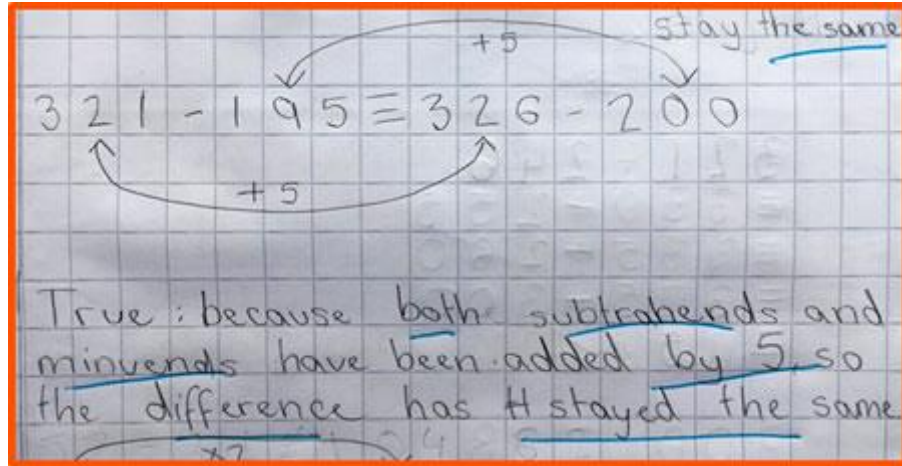 stay the same
+5
321-195≡326-200
+5
True: because both subtrahends and
minuends have been added by 5 so
the difference has stayed the same
×2